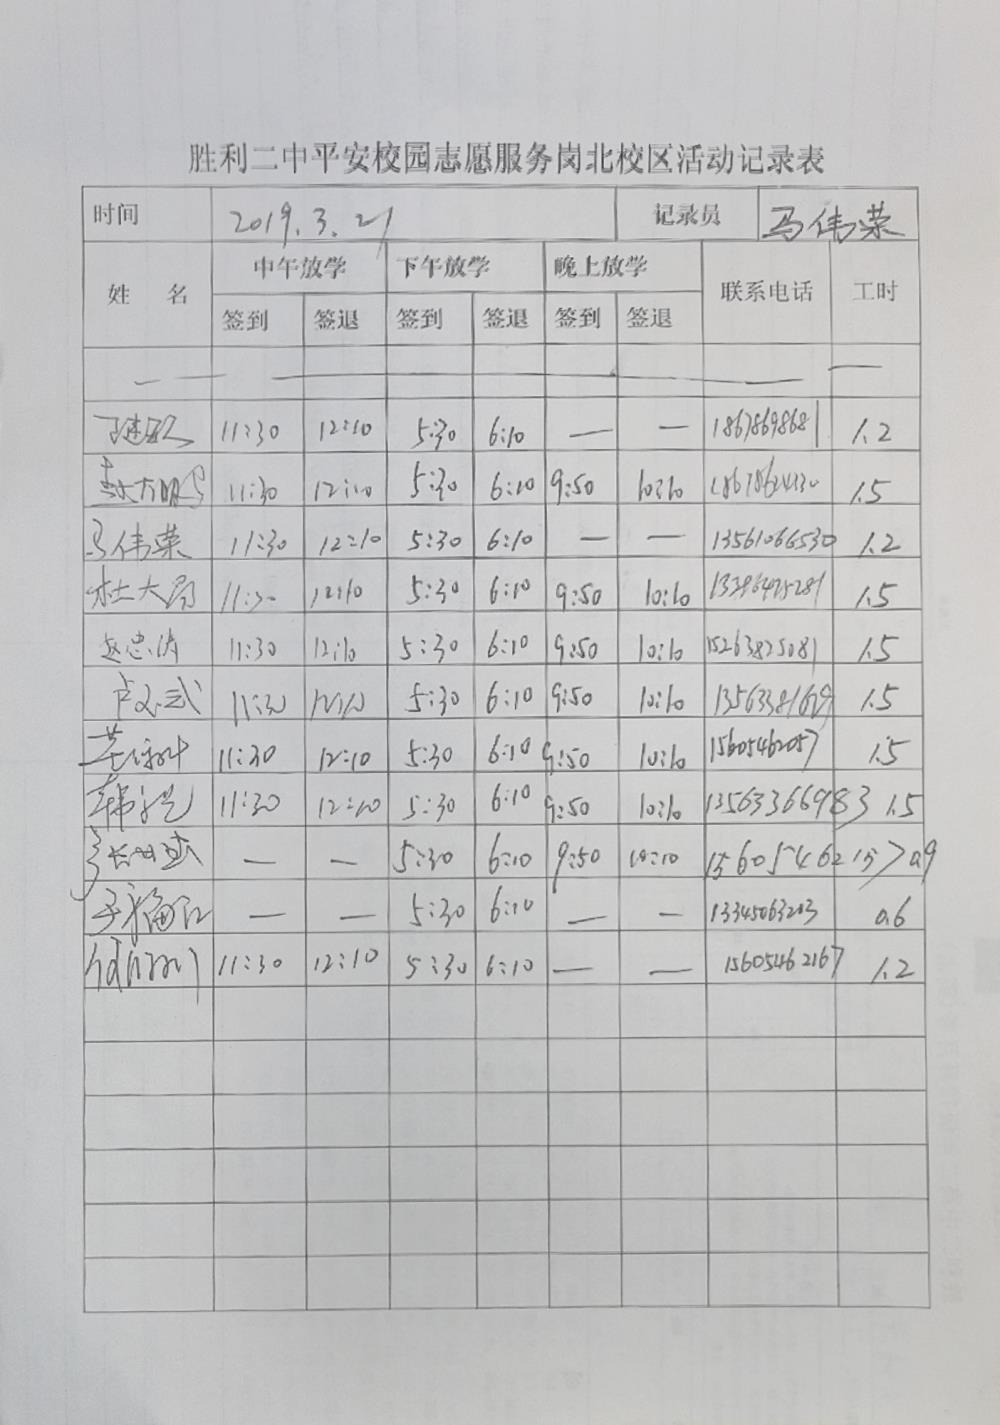 胜利二中平安校园志愿服务岗北校区活动记录表
时间 2019.3.21 记录员 马伟荣
姓 名 中午放学 下午放学 晚上放学 联系电话 工时
签到 签退 签到 签退 签到 签退
— — —
11:30 12:10 5:30 6:10 — — 18678698681 1.2
11:30 12:10 5:30 6:10 9:50 10:10 1.5
马伟荣 11:30 12:10 5:30 6:10 — — 13561066530 1.2
杜大 11:30 12:10 5:30 6:10 9:50 10:10 1.5
赵忠涛 11:30 12:10 5:30 6:10 9:50 10:10 15263825081 1.5
11:30 12:10 5:30 6:10 9:50 10:10 1.5
11:30 12:10 5:30 6:10 9:50 10:10 15605462057 1.5
韩 11:30 12:10 5:30 6:10 9:50 10:10 13563366983 1.5
— — 5:30 6:10 9:50 10:10 15605462157 0.9
— — 5:30 6:10 — — 13345063203 0.6
11:30 12:10 5:30 6:10 — — 15605462167 1.2